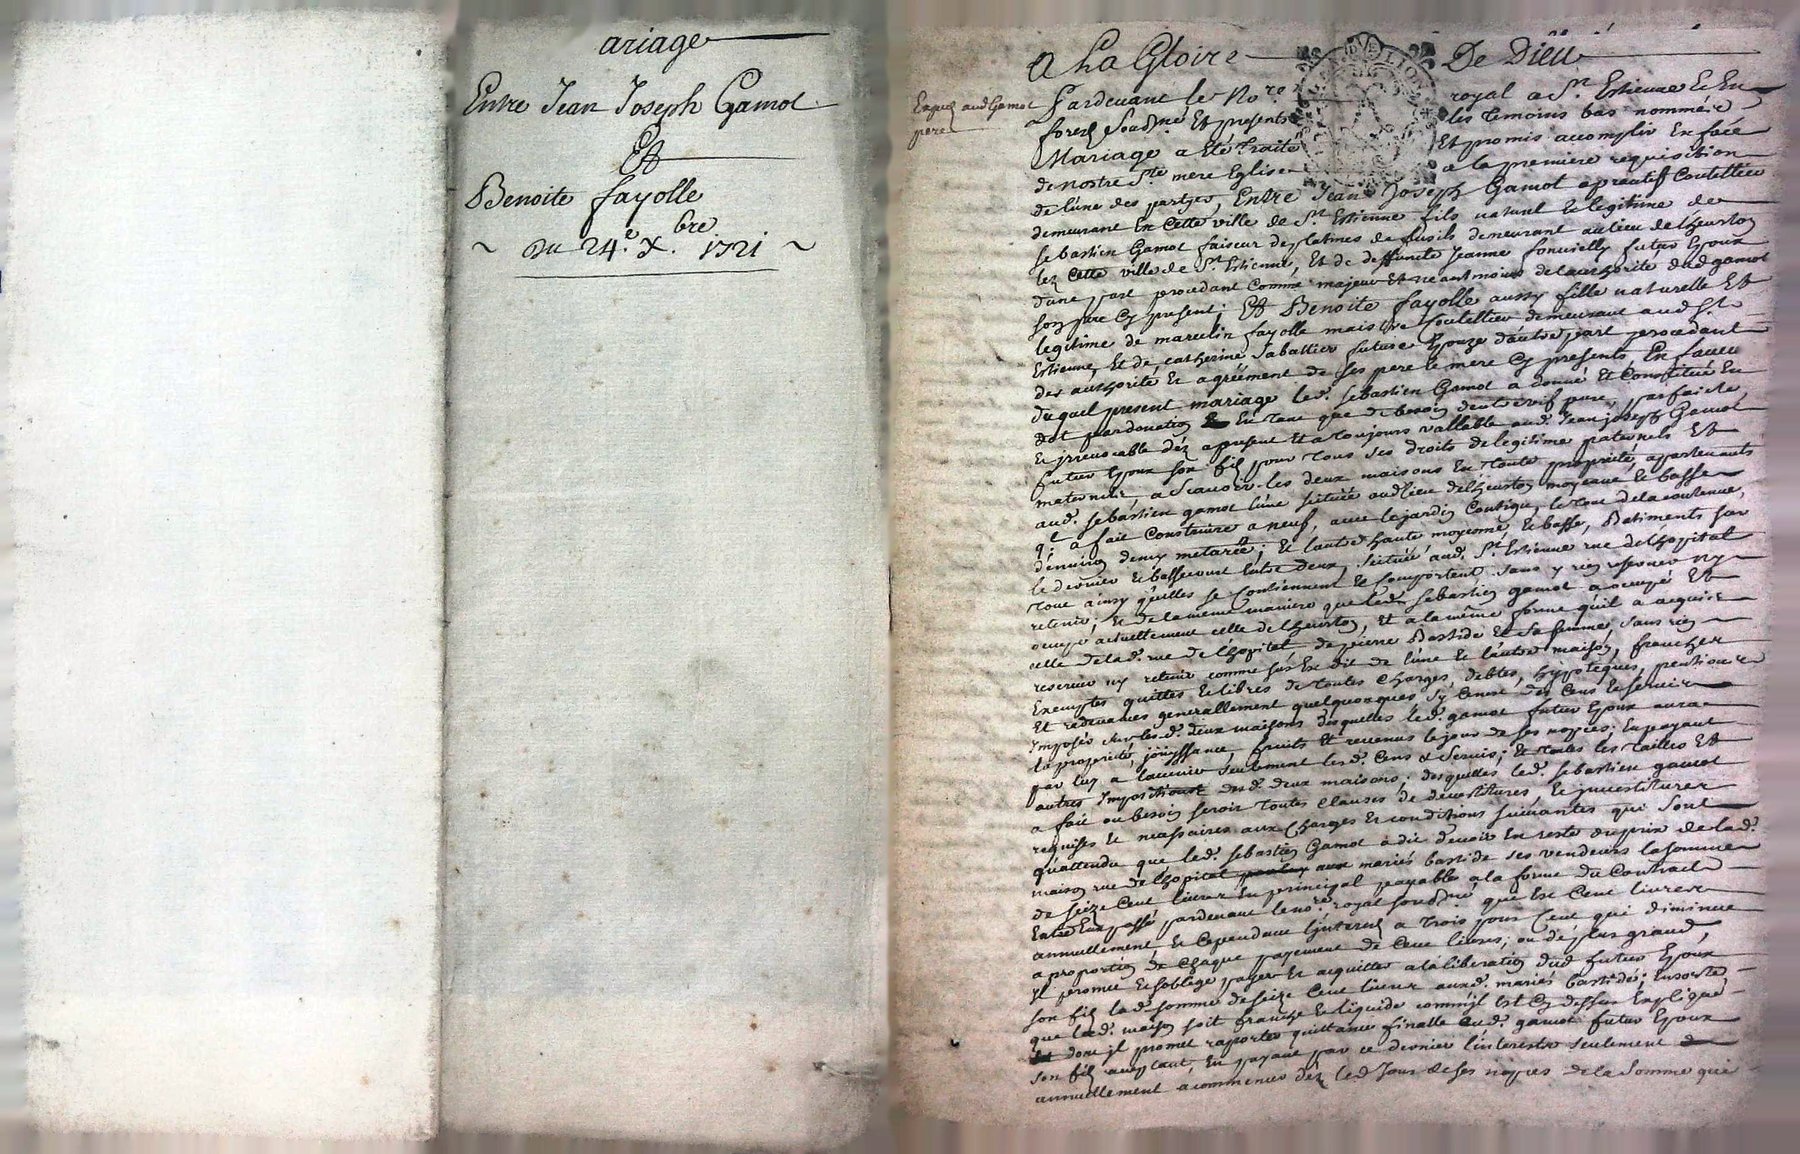 ariage
Entre Jean Joseph Gamot
Et
Benoite fayolle
~ Du 24.e X.bre 1721 ~
A La Gloire De Dieu
Expié audGamot
pere
Pardevant le No.re royal a St Estienne En
forest Soudné Et presents les temoins bas nommés
Mariage a Eté traité Et promis accomplir En face
de nostre Ste mere Eglise a la premiere requisition
de lune des partyes, Entre Jean Joseph Gamot aprantif Coutellier
demeurant En Cette ville de St Estienne fils naturel & legitime de
Sebastien Gamot faiseur de platines de fusils demeurant au lieu de lheurton
lez Cette ville de St Estienne, Et de deffunte Jeanne fonvielly futur Epoux
dune part procedant Comme majeur Et neantmoins de lauthorité dud gamot
son pere Cy present; Et Benoite fayolle aussy fille naturelle Et
legitime de marcelin fayolle maistre Coutellier demeurant aud St
Estienne, Et de Catherine Sabattier future Epouze dautre part procedant
des authorité & agréement de ses pere & mere Cy presents, En faveur
duquel present mariage led. Sebastien Gamot a donné Et Constitué En
dot par donation En tant que de besoin dentre vif pure, parfaicte
& irrevocable déz apresent Et a toujours vallable aud. Jean joseph Gamot
futur Epoux son fils pour tous ses droits de legitime paternels Et
maternels, a Scavoir les deux maisons En toute proprieté appartenants
aud. Sebastien gamot lune scituée aud lieu de lheurton moyenne & basse
q.l a fait Construire a neuf, avec le jardin Contigue, le tout de la contenue,
denviron demy metarée; & lautre haute moyenne & basse, Batiments sur
le derriere & bassecourt Entre deux, scituée aud. St Estienne rue de lhopital
tout ainsy quelles se Contiennent & Comportent sans y rien reserver ny
retenir; & de la meme maniere que led Sebastien gamot a occupé Et
occupe actuellement celle de lheurton, Et a la même forme quil a acquise
celle de lad. rue de lhopital de pierre Bastide Et sa femme sans rien
reserver ny retenir comme sus Est dit de lune & lautre maison, franches
Exemptes quittes & libres de toutes Charges, debtes, hypoteques, pentions
Et redevances generallement quelquonques, Cens & Servis
Imposés sur lesd. deux maisons desquelles led. gamot futur Epoux aura
la proprieté, jouyssance fruits & revenus le jour de ses nopces; En payant
par luy a lavenir seulement lesd. Cens & Servis; Et toutes les tailles Et
autres Impositions desd. deux maisons; desquelles led. Sebastien gamot
a fait ou besoin seroit toutes clauses de devestitures, & investitures
requises & necessaires aux Charges & conditions suivantes qui sont
quattendu que led. Sebastien Gamot a dit devoir En reste du prix de lad.
maison rue de lhopital aux mariés bastide ses vendeurs la somme
de seize Cent livres En principal payables a la forme du Contract
Entre Eux passé pardevant le nore royal soudné que Est Cent livres
annuellement & Cependant lInterest a trois pour Cent qui diminue
a proportion de Chaque payement de Cent livres; ou de plus grand,
Il promet & soblige payer & acquitter a la liberation dud futur Epoux
son fils lad. somme de seize Cent livres auxd. mariés bastide; Ensorte
que lad. maison soit franche & liquide comme il Est Cy dessus Expliqué
dont il promet raporter quittance finalle aud. gamot futur Epoux
son fils acceptant, En payant par ce dernier linterest seulement
annuellement a commencer dez led Jour de ses nopces de la somme qui